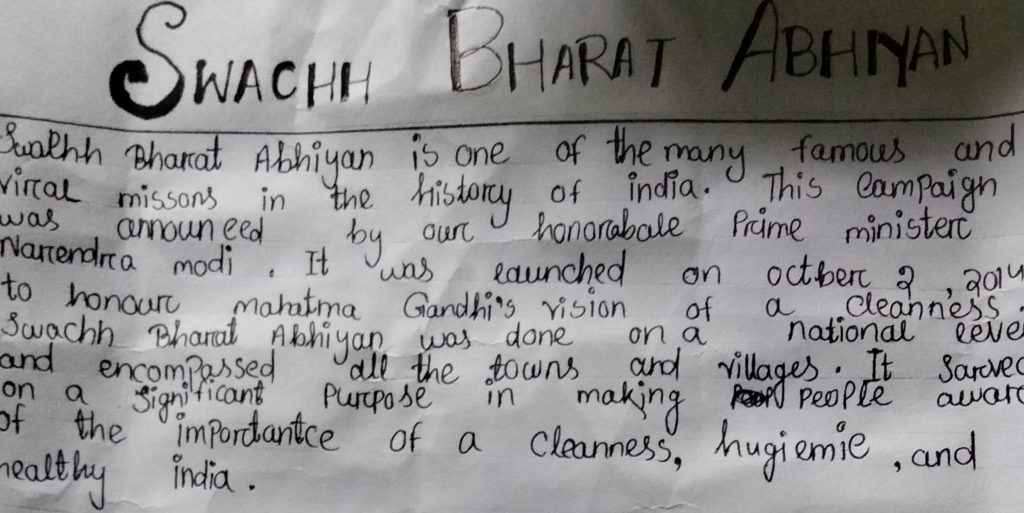 SWACHH BHARAT ABHIYAN
Swachh Bharat Abhiyan is one of the many famous and
viral missons in the history of india. This Campaign
was announced by our honorabale Prime minister
Narendra modi. It was launched on octber 2, 2014
to honour mahatma Gandhi's vision of a cleanness.
Swachh Bharat Abhiyan was done on a national level
and encompassed all the towns and villages. It Sarved
on a Significant Purpose in making PeoPle aware
of the importantce of a cleanness, hugiemie, and
healthy india.